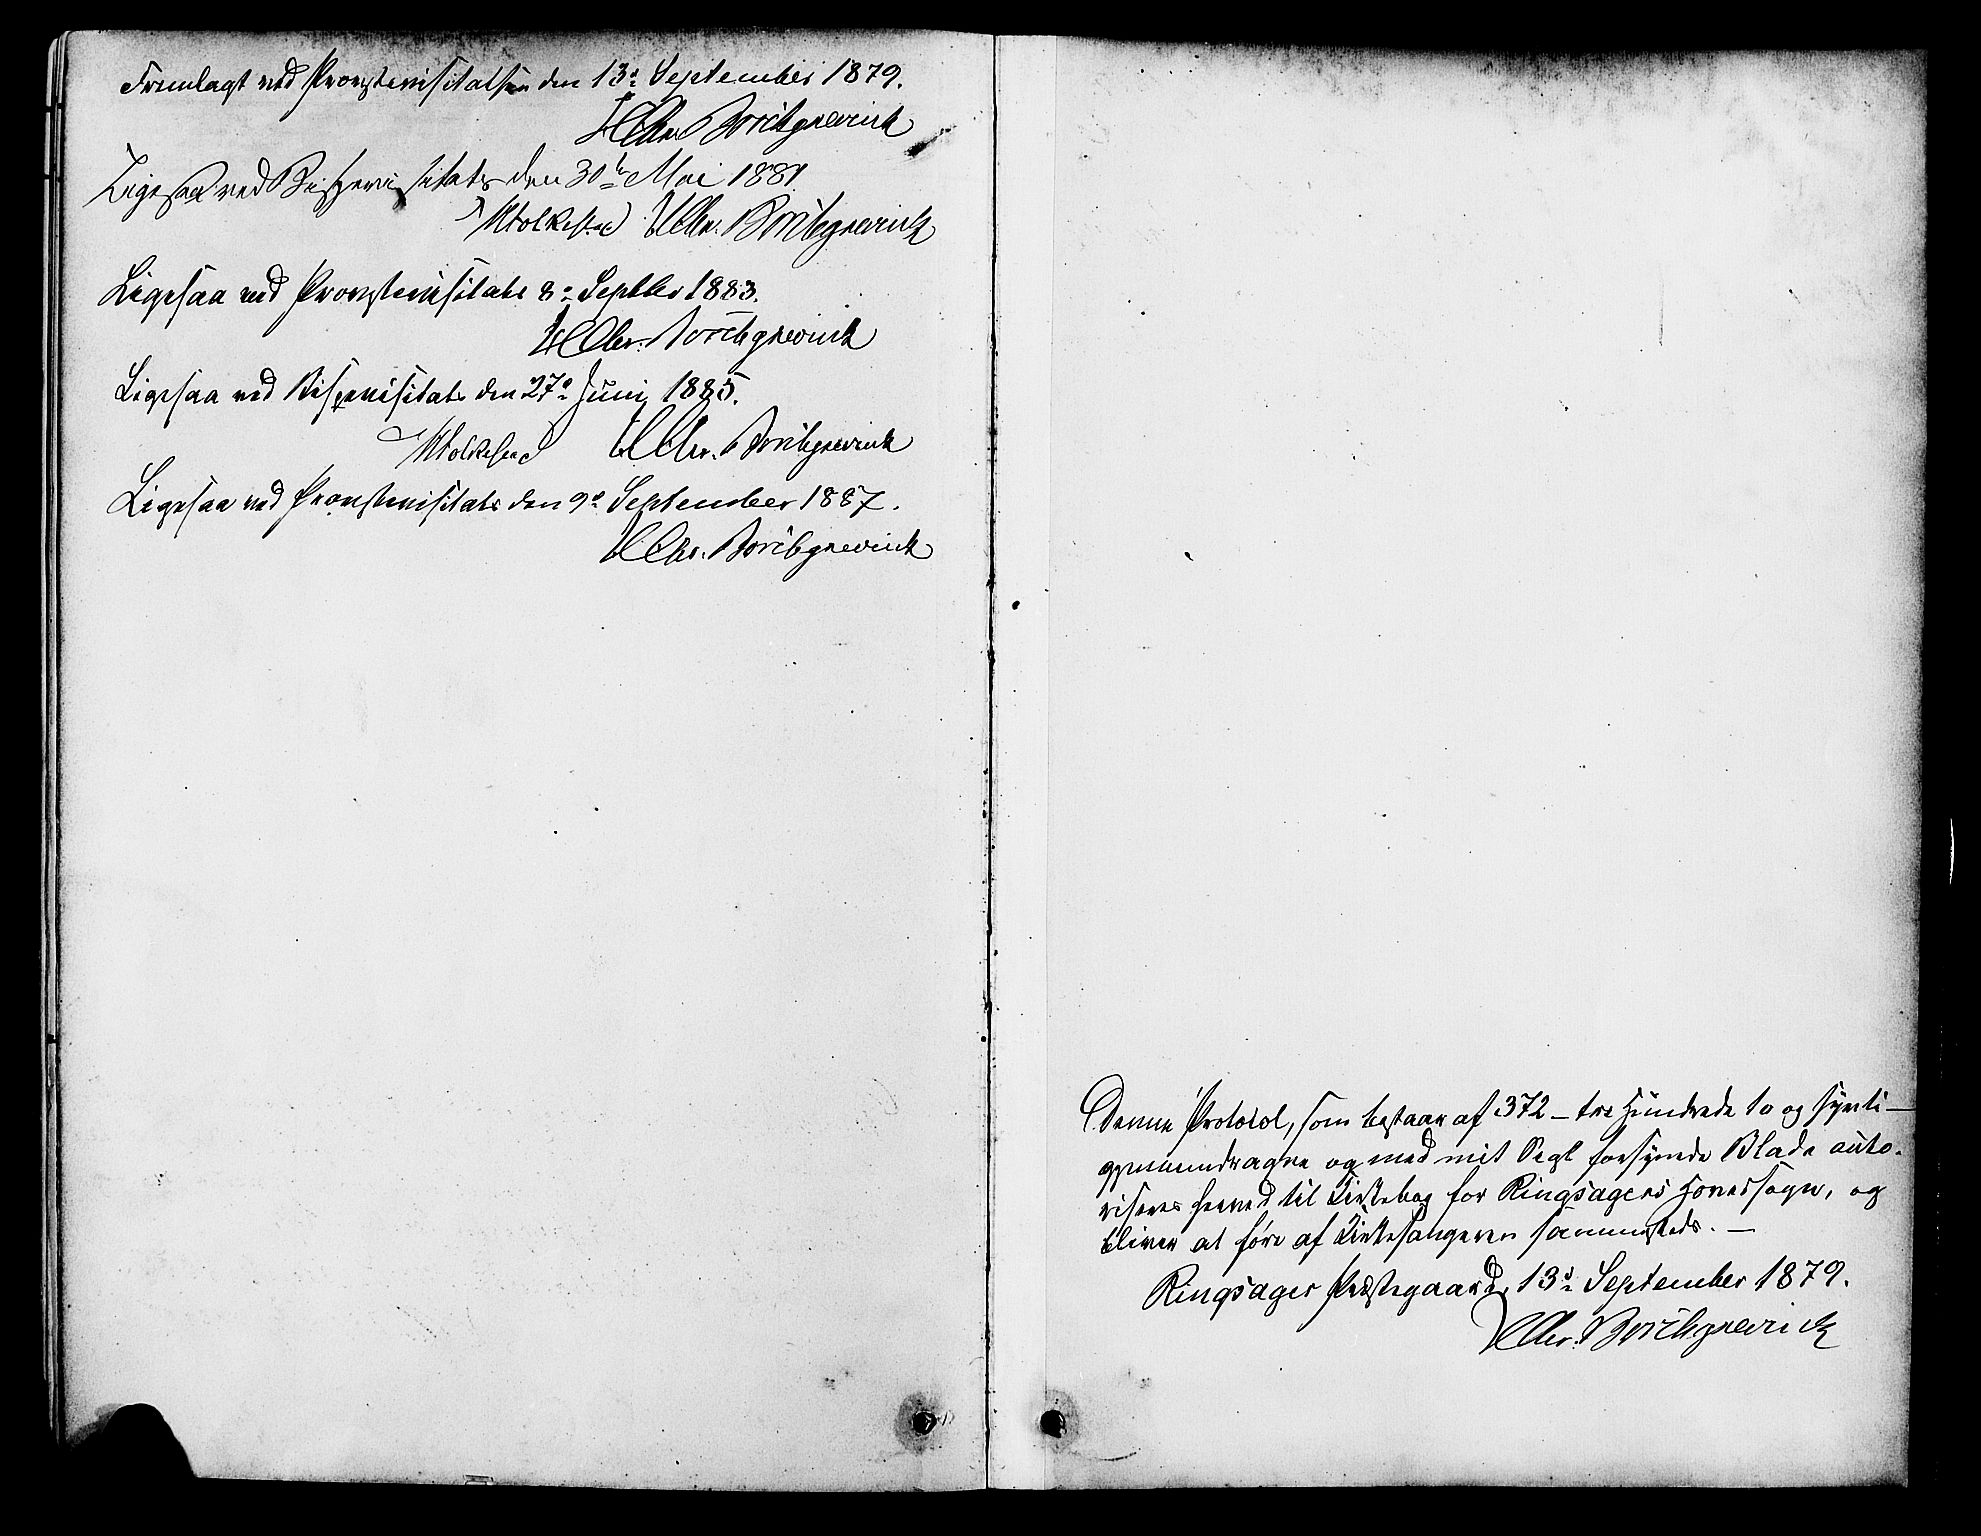 Fremlagt ved Provstevisitatsen den 13de September 1879.
H Chr. Borchgrevink
Ligesaa ved Bispevisitats den 30te Mai 1881
Folkestad H Chr. Borchgrevink
Ligesaa ved Provstevisitats 8de Septbr 1883.
H Chr. Borchgrevink
Ligesaa ved Bispevisitats den 27de Juni 1885.
Folkestad H Chr. Borchgrevink
Ligesaa ved Provstevisitats den 9de September 1887.
H Chr. Borchgrevink
Denne Protocol, som bestaar af 372 – tre Hundrede to og sytti –
gjennemdragne og med mit Segl forsynede Blade auto-
riseres herved til Kirkebog for Ringsagers Hovedsogn, og
bliver at føre af Kirkesangeren sammesteds. –
Ringsager Præstegaard, 13de September 1879.
H Chr. Borchgrevink